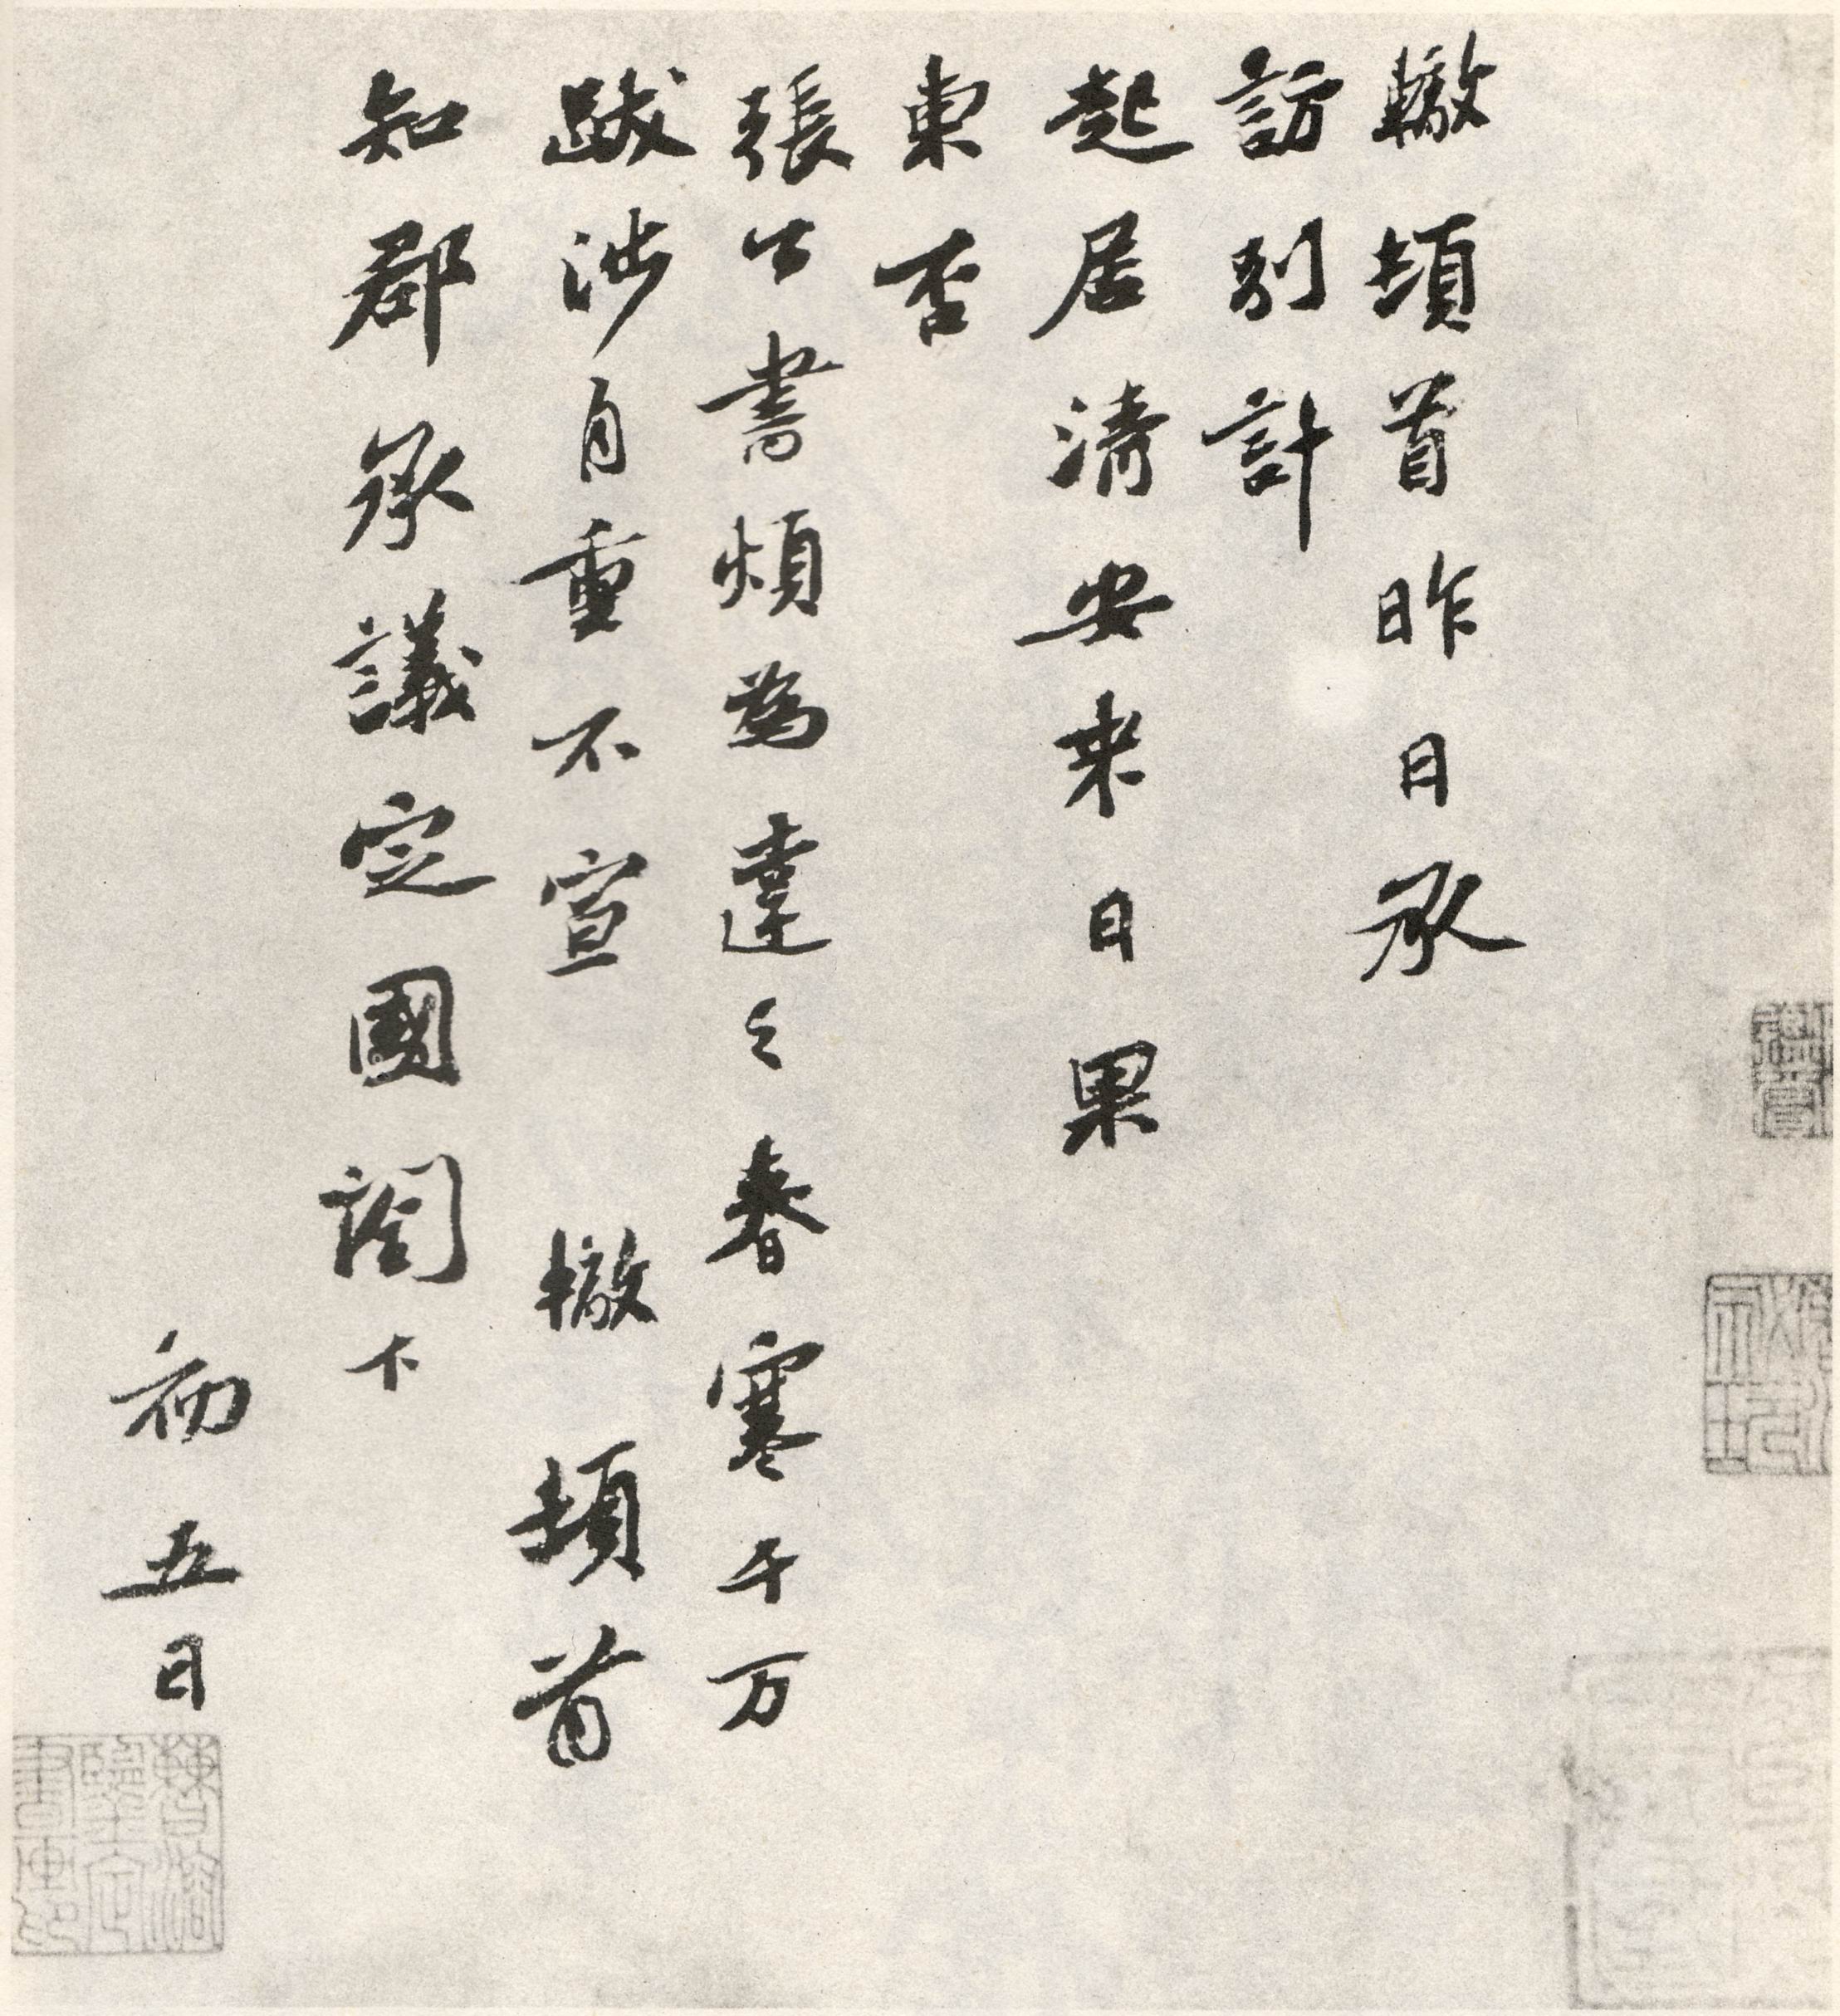 轍頓首昨日承
訪別計
起居清安来日果
東否
張公書煩為達之春寒千万
跋涉自重不宣 轍頓首
知郡承議定國閤下
初五日